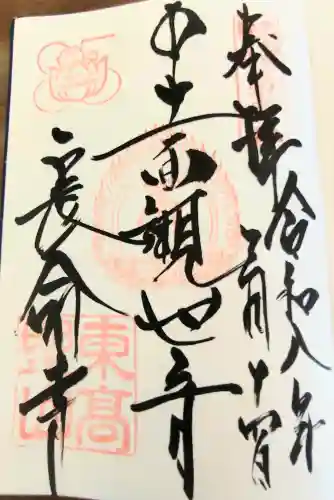 奉拝
令和八年
三月十四日
十一面觀世音
長命寺
東高
野山